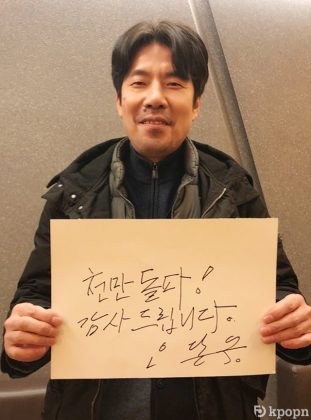 천만 돌파!
감사드립니다.
오 달 수.
kpopn